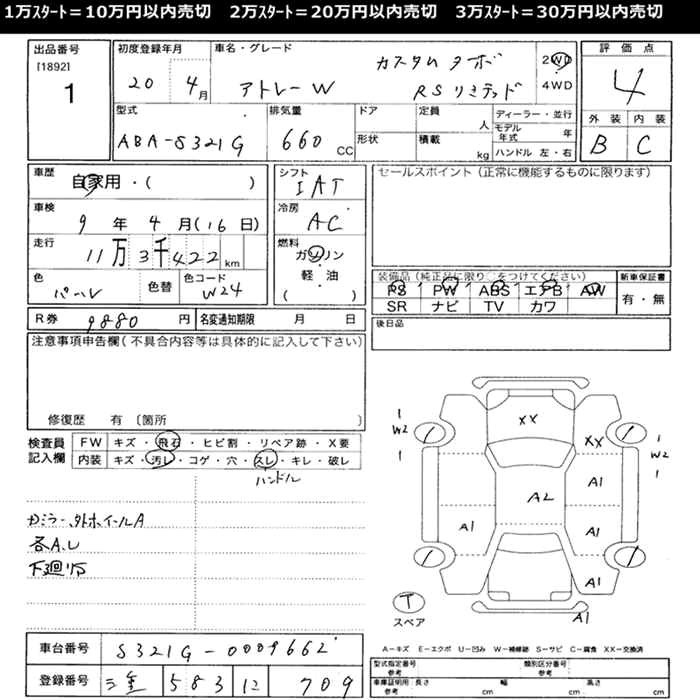 1万ｽﾀｰﾄ＝10万円以内売切　2万ｽﾀｰﾄ＝20万円以内売切　3万ｽﾀｰﾄ＝30万円以内売切
出品番号 [1892] 1
初度登録年月 20 4月
車名・グレード アトレーW カスタムターボ RSリミテッド
2WD 4WD
評価点 4
外装 B 内装 C
型式 ABA-S321G
排気量 660 CC
ドア 形状
定員 人
積載 kg
ディーラー・並行
モデル年式 年
ハンドル 左・右
車歴 自家用・( )
車検 9年4月(16日)
走行 11万3千422km
色 パール 色替 色コード W24
シフト IAT
冷房 AC
燃料 ガソリン 軽・油 ( )
セールスポイント(正常に機能するものに限ります)
装備品(純正品に限り○をつけてください)
PS PW ABS エアB AW
SR ナビ TV カワ
新車保証書 有・無
R券 9880円
名変通知期限 月 日
後日品
注意事項申告欄(不具合内容等は具体的に記入して下さい)
修復歴 有 〔箇所
検査員記入欄
FW キズ・飛石・ヒビ割・リペア跡・X要
内装 キズ・汚レ・コゲ・穴・スレ・キレ・破レ
ハンドル
ホイールA
各A.U
下廻り
1 W2 1
XX
XX
1 W2 1
A1
A2
A1
A1
A1
A1
T
スペア
A−キズ E−エクボ U−凹み W−補修跡 S−サビ C−腐食 XX−交換済
車台番号 S321G-0009662
登録番号 三重 583 12 709
型式指定番号 参考
類別区分番号 参考
車庫証明用 参考 長さ cm 幅 cm 高さ cm